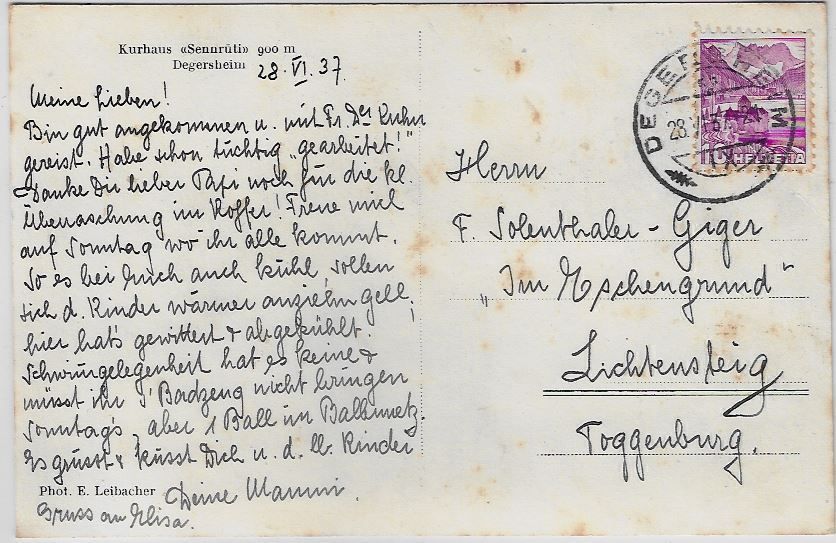 Kurhaus «Sennrüti» 900 m
Degersheim
28. VI. 37
Meine Lieben!
Bin gut angekommen u. mit Fr. Dr Kuhn
gereist. Habe schon tüchtig „gearbeitet!"
Danke Dir lieber Papi noch für die kl.
Überraschung im Koffer! Freue mich
auf Sonntag wo ihr alle kommt.
So es bei Euch auch kühl, sollen
sich d. Kinder wärmer anziehn gell,
hier hat's gewittert & abgekühlt!
Schwimgelegenheit hat es keine &
müsst ihr s' Badzeug nicht bringen
Sonntag's, aber 1 Ball im Ballnnetz.
Es grüsst & küsst Dich u. d. lb. Kinder
Deine Mammi.
Phot. E. Leibacher
Gruss an Elisa.
DEGERSHEIM
28. VI. 37
10 HELVETIA
Herrn
F. Solenthaler-Giger
„Im Eschengrund"
Lichtensteig
Toggenburg.